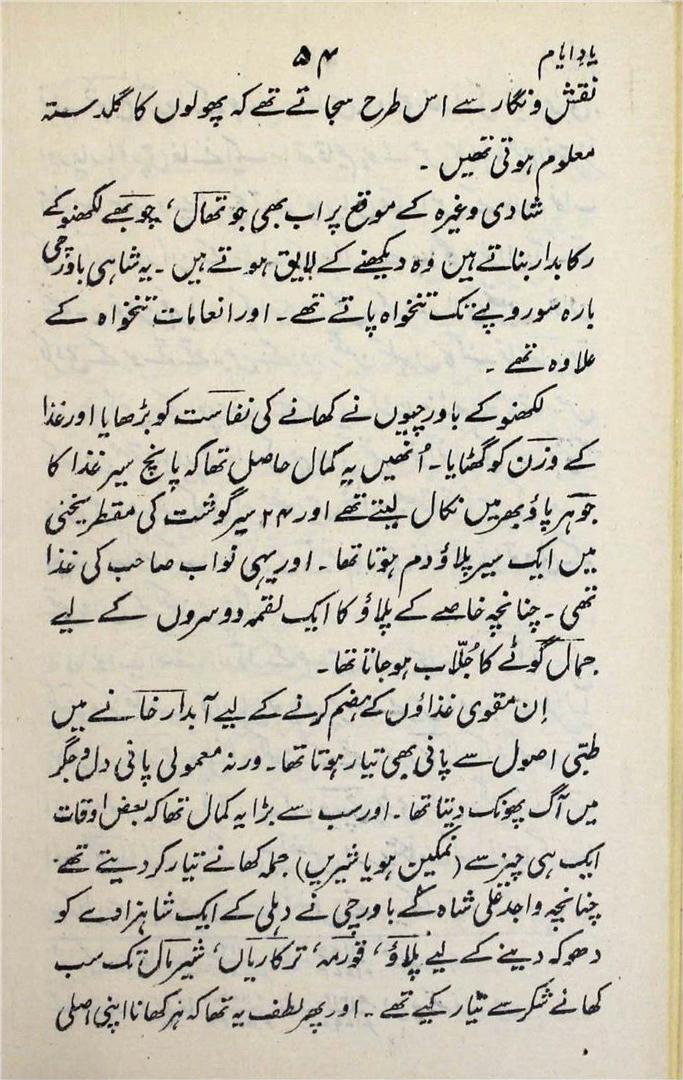 یادِ ایام
۵۴
نقش ونگار سے اس طرح سجاتے تھے کہ پھولوں کا گلدستہ
معلوم ہوتی تھیں ۔
شادی وغیرہ کے موقع پر اب بھی جو تھال، چوبھے لکھنو کے
رکابدار بناتے ہیں وہ دیکھنے کے لایق ہوتے ہیں ۔ یہ شاہی باورچی
بارہ سو روپے تک تنخواہ پاتے تھے ۔ اور انعامات تنخواہ کے
علاوہ تھے ۔
لکھنو کے باورچیوں نے کھانے کی نفاست کو بڑھایا اور غذا
کے وزن کو گھٹایا ۔ اُنھیں یہ کمال حاصل تھا کہ پانچ سیر غذا کا
جوہر پاؤ بھر میں نکال لیتے تھے اور ۲۴ سیر گوشت کی مقطر یخنی
میں ایک سیر پلاؤ دم ہوتا تھا ۔ اور یہی نواب صاحب کی غذا
تھی ۔ چنانچہ خاصے کے پلاؤ کا ایک لقمہ دوسروں کے لیے
جمال گوٹے کا جُلّاب ہوجاتا تھا ۔
اِن مقوی غذاؤں کے ہضم کرنے کے لیے آبدار خانے میں
طبّی اصول سے پانی بھی تیار ہوتا تھا ۔ ورنہ معمولی پانی دل و جگر
میں آگ پھونک دیتا تھا ۔ اور سب سے بڑا یہ کمال تھا کہ بعض اوقات
ایک ہی چیز سے (نمکین ہو یا شیریں) جملہ کھانے تیار کردیتے تھے ۔
چنانچہ واجد علی شاہ کے باورچی نے دہلی کے ایک شاہزادے کو
دھوکہ دینے کے لیے پلاؤ، قورمہ، ترکاریاں، شیرمال تک سب
کھانے شکر سے تیار کیے تھے ۔ اور پھر لطف یہ تھا کہ ہر کھانا اپنی اصلی